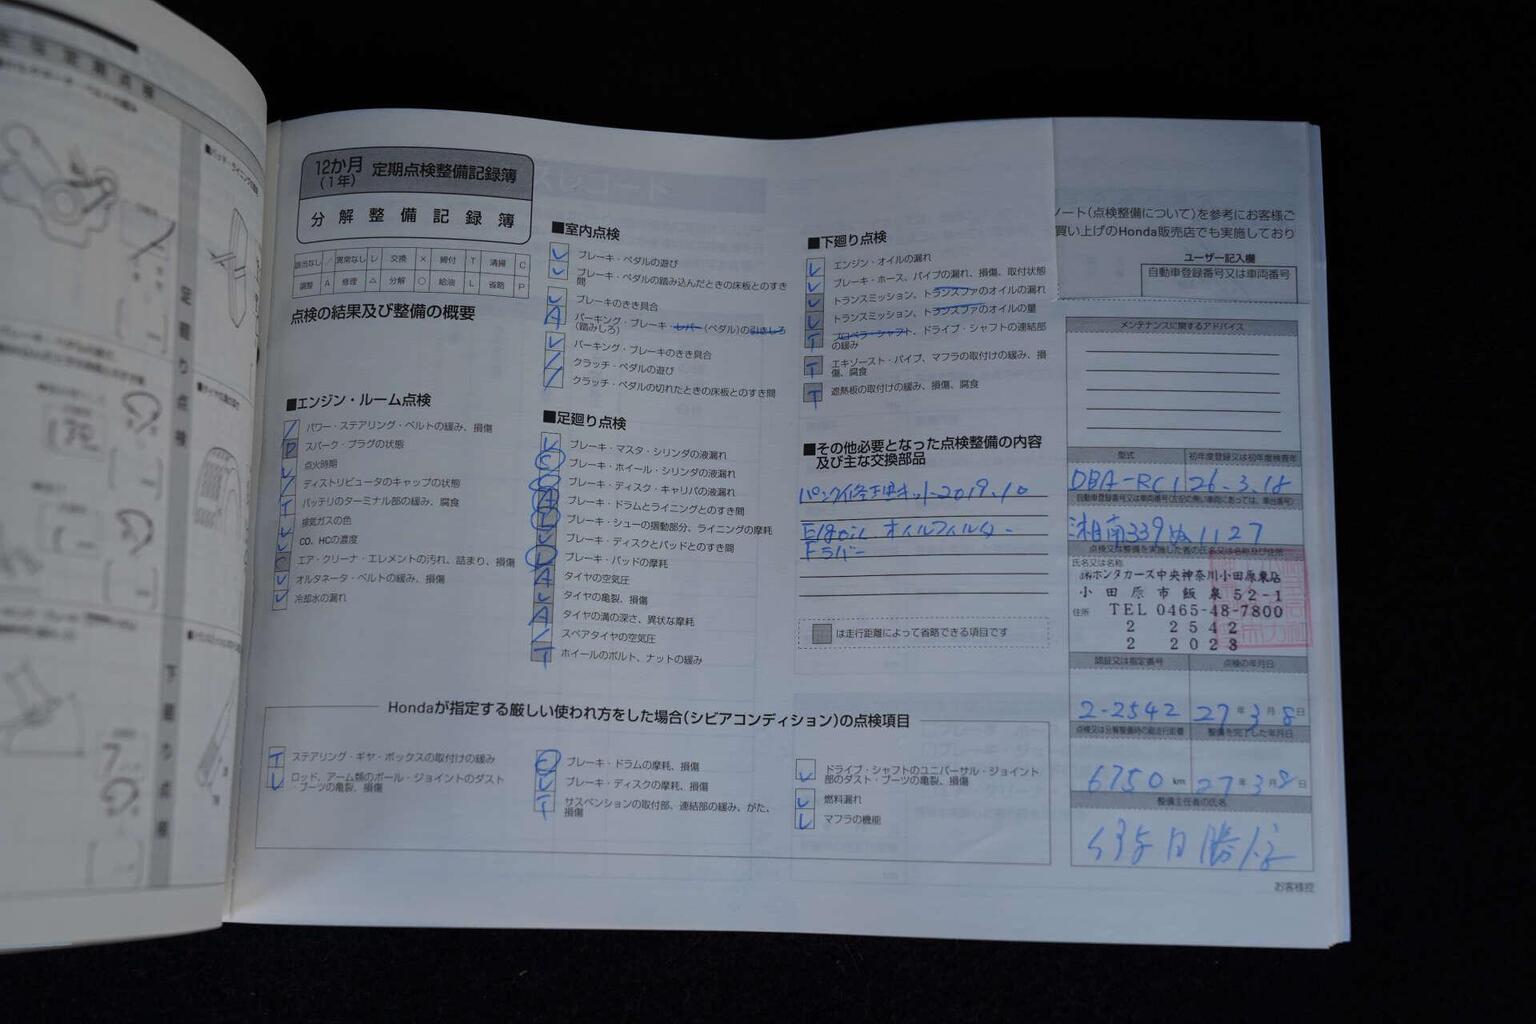 12か月
(1年)
定期点検整備記録簿
分解整備記録簿
該当なし / 異常なし レ 交換 × 締付 T 清掃 C
調整 A 修理 △ 分解 ○ 給油 L 省略 P
点検の結果及び整備の概要
■エンジン・ルーム点検
/ パワー・ステアリング・ベルトの緩み、損傷
P スパーク・プラグの状態
レ 点火時期
/ ディストリビュータのキャップの状態
T バッテリのターミナル部の緩み、腐食
レ 排気ガスの色
レ CO、HCの濃度
C エア・クリーナ・エレメントの汚れ、詰まり、損傷
レ オルタネータ・ベルトの緩み、損傷
レ 冷却水の漏れ
■室内点検
レ ブレーキ・ペダルの遊び
レ ブレーキ・ペダルの踏み込んだときの床板とのすき間
レ ブレーキのきき具合
A パーキング・ブレーキ・レバー(ペダル)の引きしろ(踏みしろ)
レ パーキング・ブレーキのきき具合
/ クラッチ・ペダルの遊び
/ クラッチ・ペダルの切れたときの床板とのすき間
■足廻り点検
レ ブレーキ・マスタ・シリンダの液漏れ
ブレーキ・ホイール・シリンダの液漏れ
ブレーキ・ディスク・キャリパの液漏れ
ブレーキ・ドラムとライニングとのすき間
ブレーキ・シューの摺動部分、ライニングの摩耗
レ ブレーキ・ディスクとパッドとのすき間
ブレーキ・パッドの摩耗
A タイヤの空気圧
レ タイヤの亀裂、損傷
A タイヤの溝の深さ、異状な摩耗
/ スペアタイヤの空気圧
T ホイールのボルト、ナットの緩み
■下廻り点検
レ エンジン・オイルの漏れ
レ ブレーキ・ホース、パイプの漏れ、損傷、取付状態
レ トランスミッション、トランスファのオイルの漏れ
レ トランスミッション、トランスファのオイルの量
T プロペラ・シャフト、ドライブ・シャフトの連結部の緩み
T エキゾースト・パイプ、マフラの取付けの緩み、損傷、腐食
T 遮熱板の取付けの緩み、損傷、腐食
■その他必要となった点検整備の内容
及び主な交換部品
パンク修理キット2019.10
オイルフィルター
は走行距離によって省略できる項目です
Hondaが指定する厳しい使われ方をした場合(シビアコンディション)の点検項目
T ステアリング・ギヤ・ボックスの取付けの緩み
レ ロッド、アーム類のボール・ジョイントのダスト・ブーツの亀裂、損傷
ブレーキ・ドラムの摩耗、損傷
レ ブレーキ・ディスクの摩耗、損傷
T サスペンションの取付部、連結部の緩み、がた、損傷
レ ドライブ・シャフトのユニバーサル・ジョイント部のダスト・ブーツの亀裂、損傷
レ 燃料漏れ
レ マフラの機能
ノート(点検整備について)を参考にお客様ご
買い上げのHonda販売店でも実施しており
ユーザー記入欄
自動車登録番号又は車両番号
メンテナンスに関するアドバイス
型式 初年度登録又は初年度検査年
DBA-RC1 26.3.18
湘南339ぬ1127
点検又は整備を実施した者の氏名又は名称及び住所
氏名又は名称
㈱ホンダカーズ中央神奈川小田原東店
小田原市飯泉52-1
住所 TEL 0465-48-7800
2 2542
2 2023
認証又は指定番号 点検の年月日
2-2542 27年3月8日
点検又は分解整備時の総走行距離 整備を完了した年月日
6750 km 27年3月8日
整備主任者の氏名
お客様控